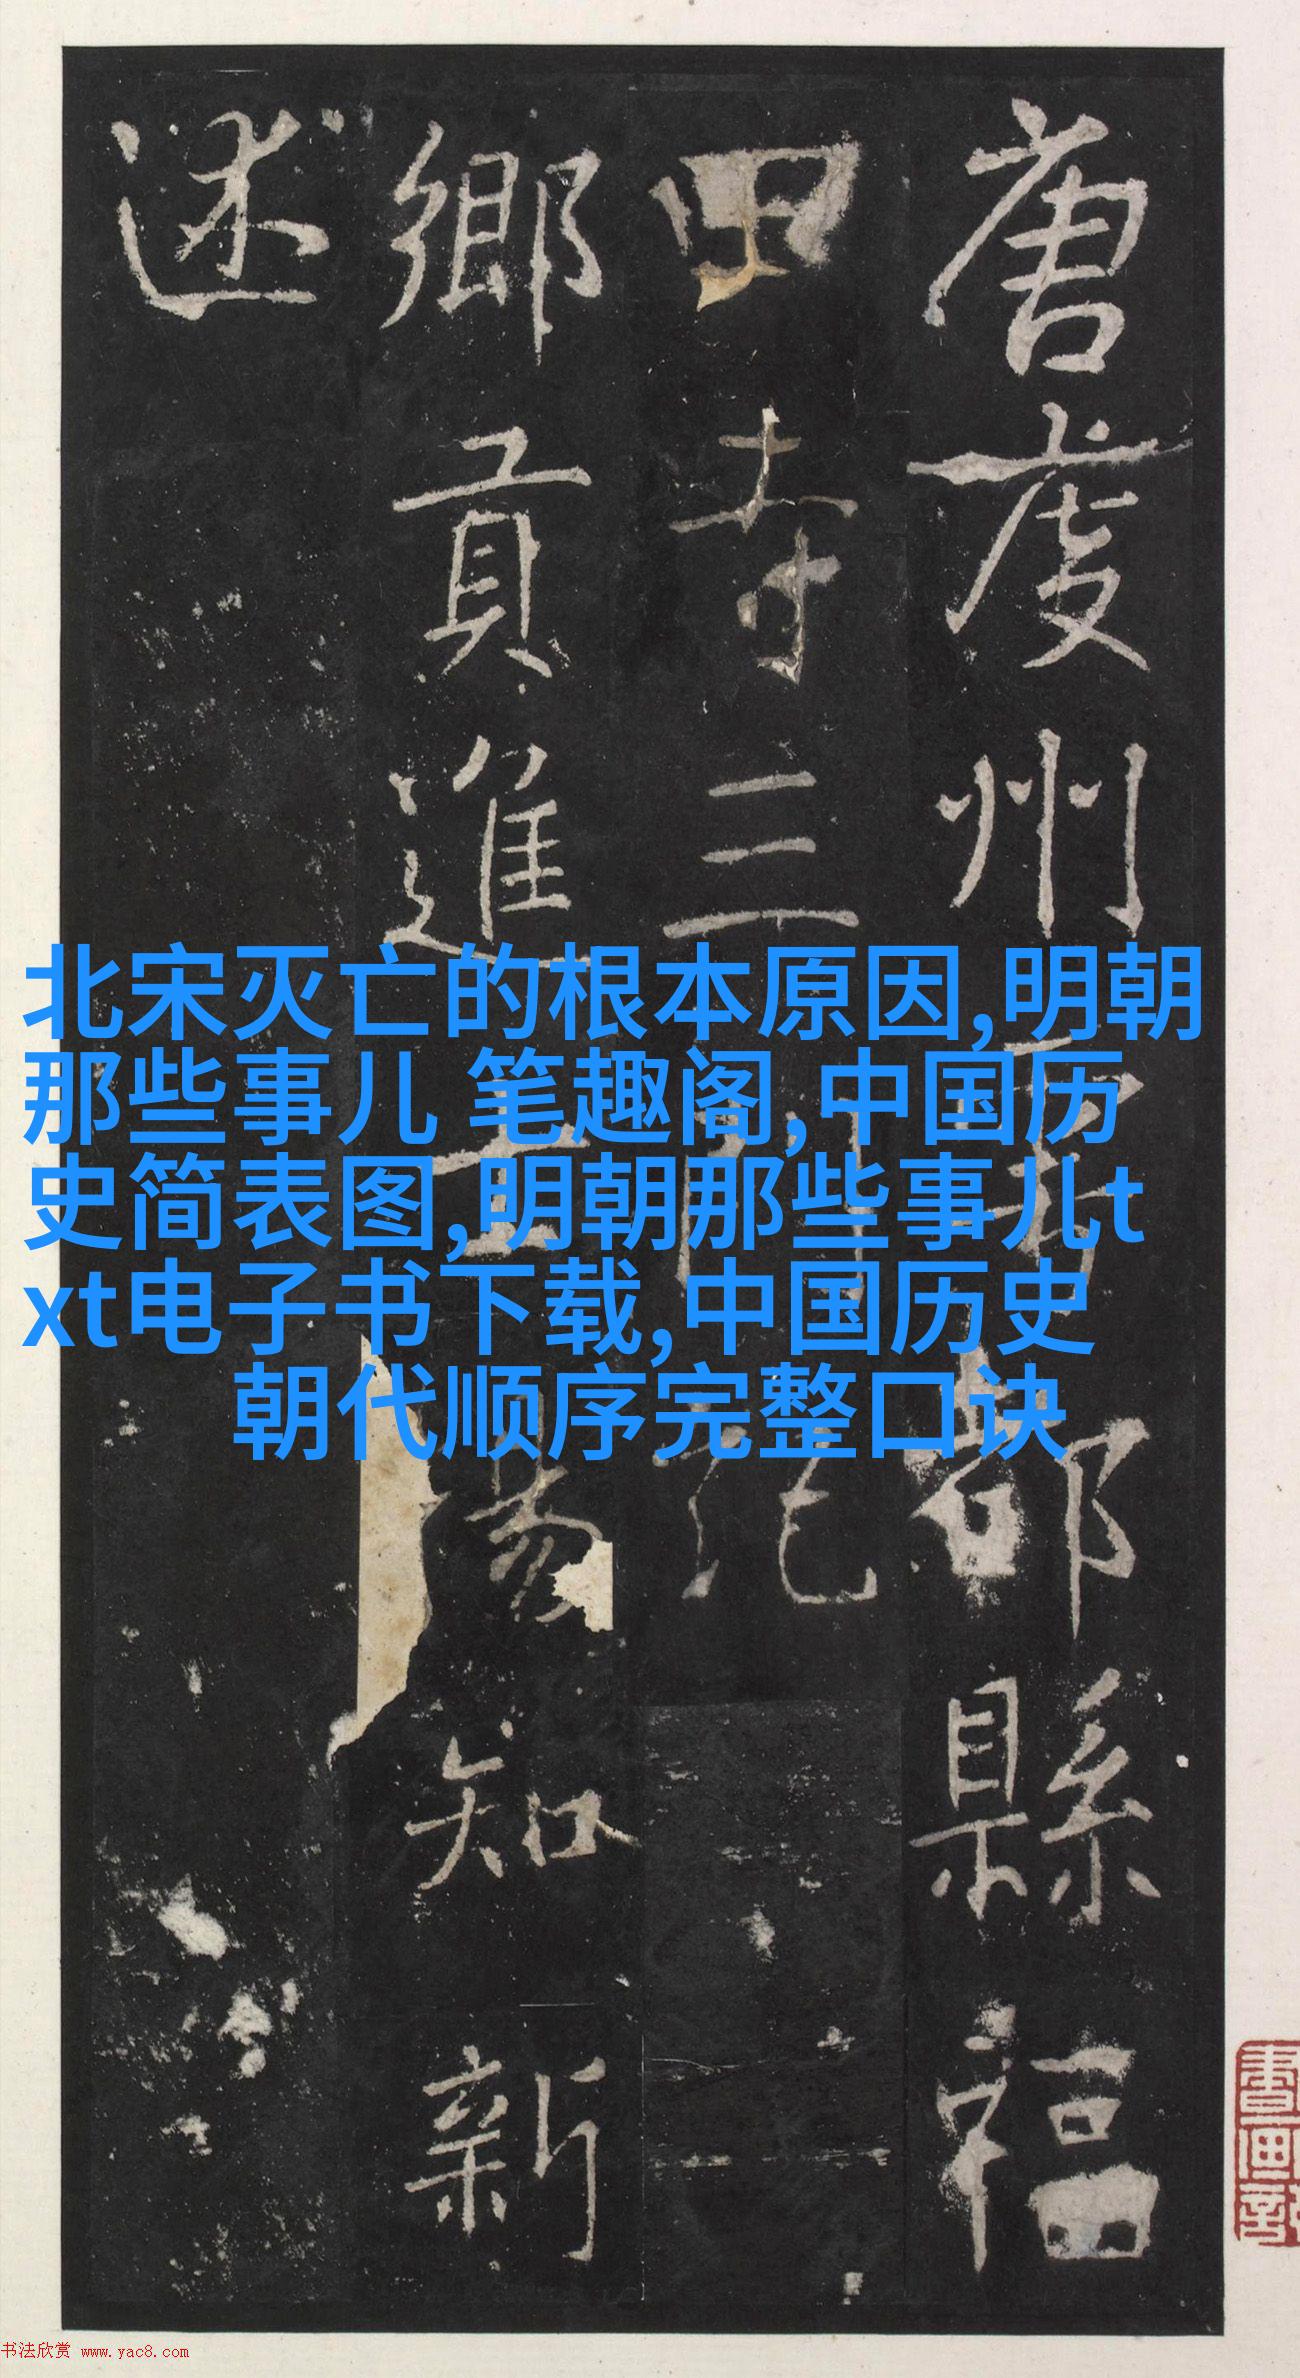 唐虔州雩都縣福
田寺三門記
鄉貢進士知新
述
北宋灭亡的根本原因,明朝
那些事儿 笔趣阁,中国历
史简表图,明朝那些事儿t
xt电子书下载,中国历史
朝代顺序完整口诀
書画
书法欣赏 www.yac8.com